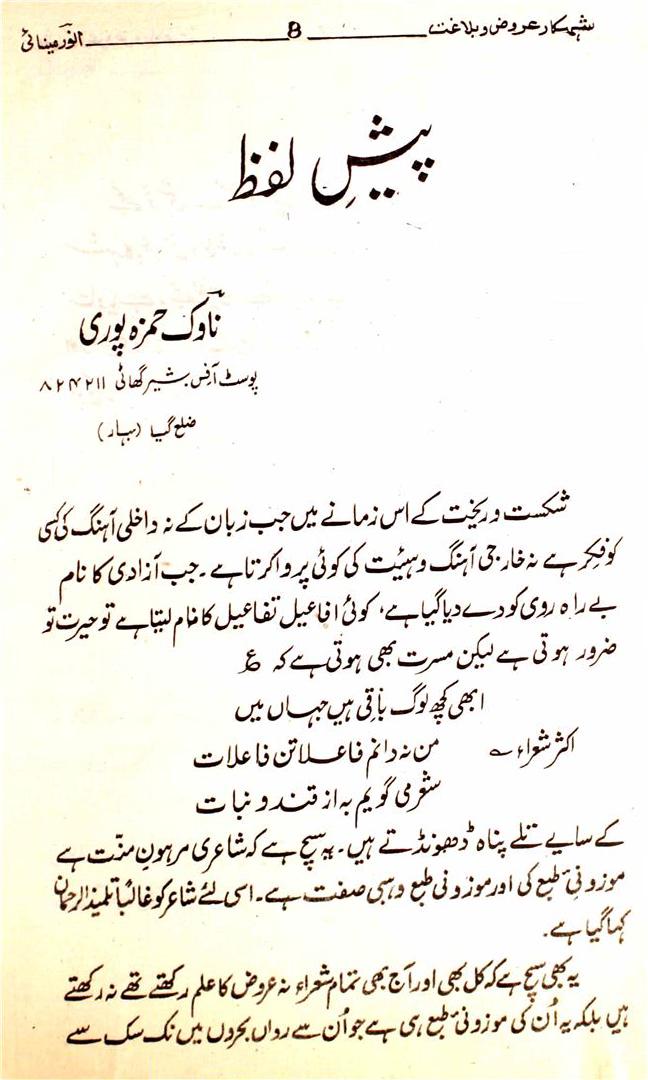 شہکار عروض و بلاغت 8 انور مینائی
پیشِ لفظ
ناوکؔ حمزہ پوری
پوسٹ آفس شیر گھاٹی ۸۲۴۲۱۱
ضلع گیا (بہار)
شکست و ریخت کے اس زمانے میں جب زبان کے نہ داخلی آہنگ کی کسی
کو فکر ہے نہ خارجی آہنگ و ہیئیت کی کوئی پروا کرتا ہے۔ جب آزادی کا نام
بے راہ روی کو دے دیا گیا ہے، کوئی افاعیل تفاعیل کا نام لیتا ہے تو حیرت تو
ضرور ہوتی ہے لیکن مسرت بھی ہوتی ہے کہ ؏
ابھی کچھ لوگ باقی ہیں جہاں میں
اکثر شعراء ؎ من نہ دانم فاعلاتن فاعلات
شعر می گویم بہ از قند و نبات
کے سایے تلے پناہ ڈھونڈتے ہیں۔ یہ سچ ہے کہ شاعری مرہونِ منّت ہے
موزونیٔ طبع کی اور موزونی طبع وہبی صفت ہے۔ اسی لئے شاعر کو غالباً تلمیذ الرحمان
کہا گیا ہے۔
یہ بھی سچ ہے کہ کل بھی اور آج بھی تمام شعراء نہ عروض کا علم رکھتے تھے نہ رکھتے
ہیں بلکہ یہ اُن کی موزونیٔ طبع ہی ہے جو اُن سے رواں بحروں میں نک سک سے